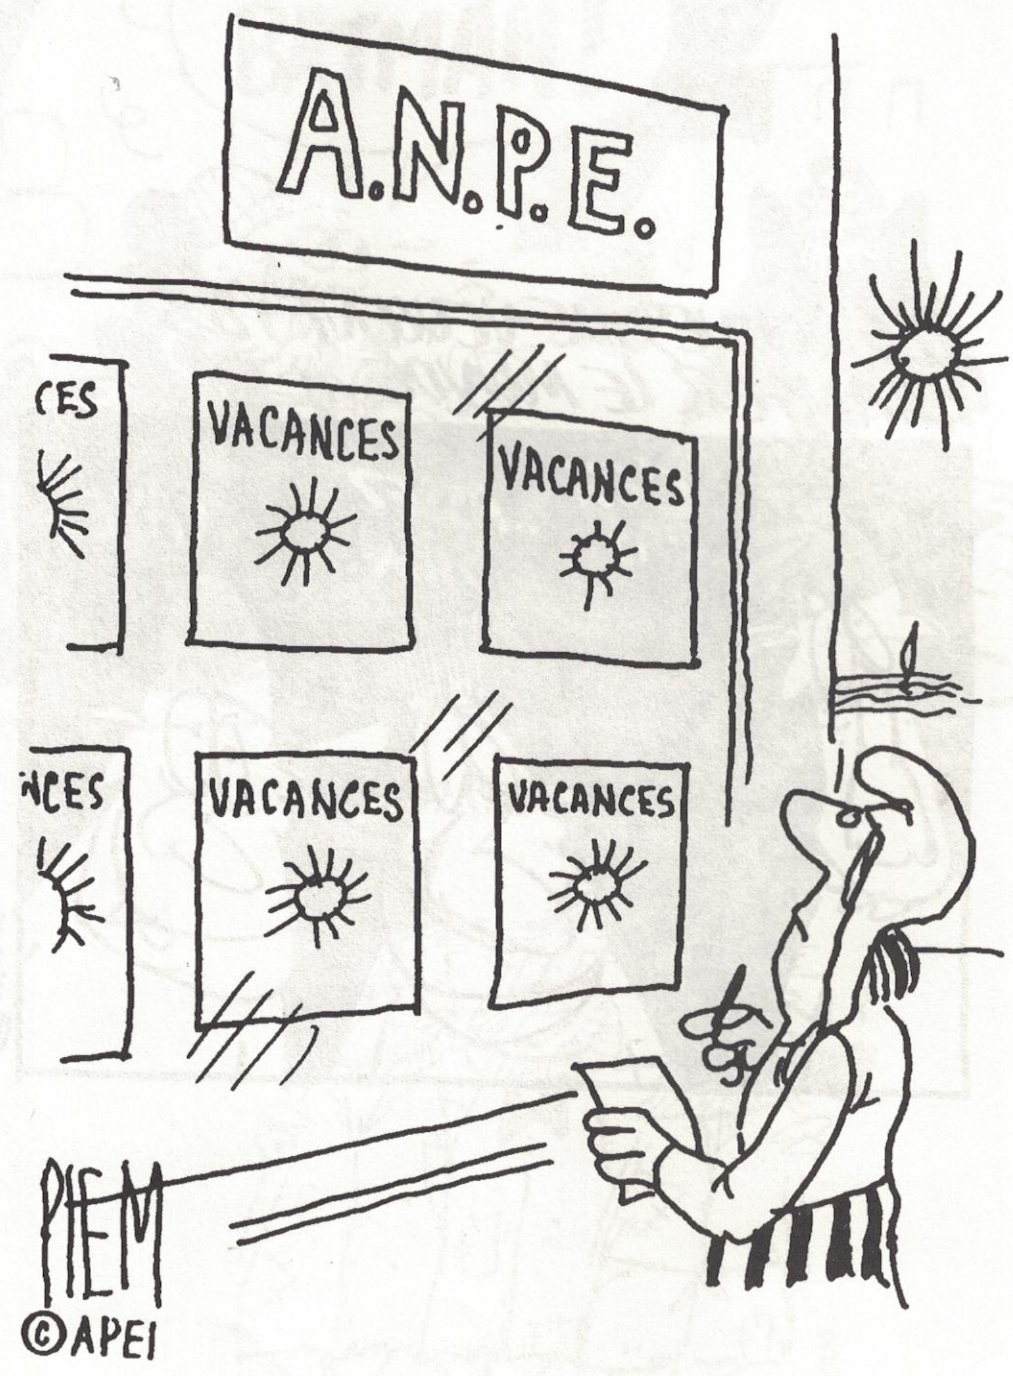 A.N.P.E.
CES
VACANCES
VACANCES
NCES
VACANCES
VACANCES
PIEM
© APEI